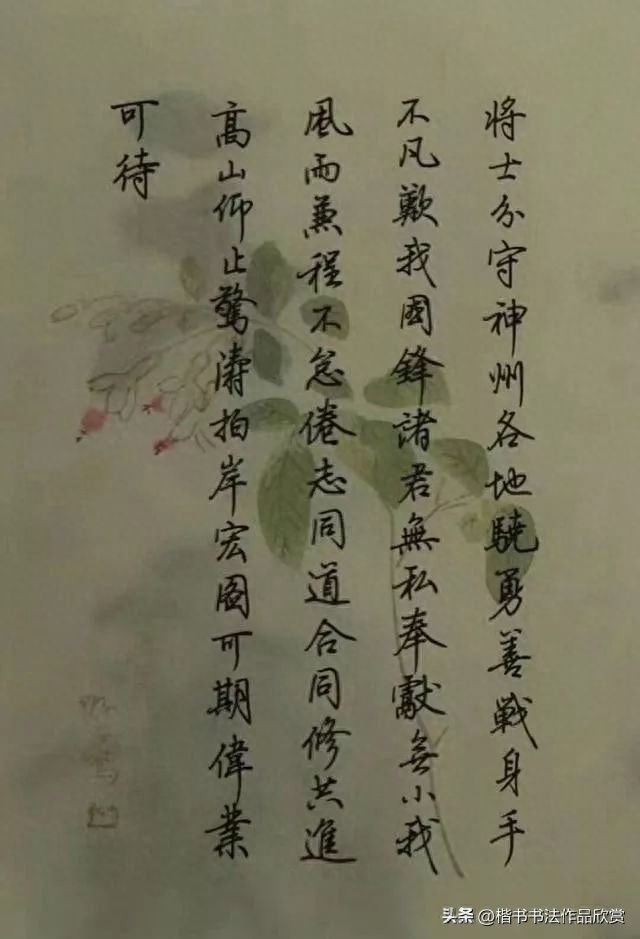 将士分守神州各地驍勇善戰身手
不凡歎我國鋒諸君無私奉獻無小我
風雨兼程不怠倦志同道合同修共進
高山仰止驚濤拍岸宏圖可期偉業
可待
头条 @楷书书法作品欣赏